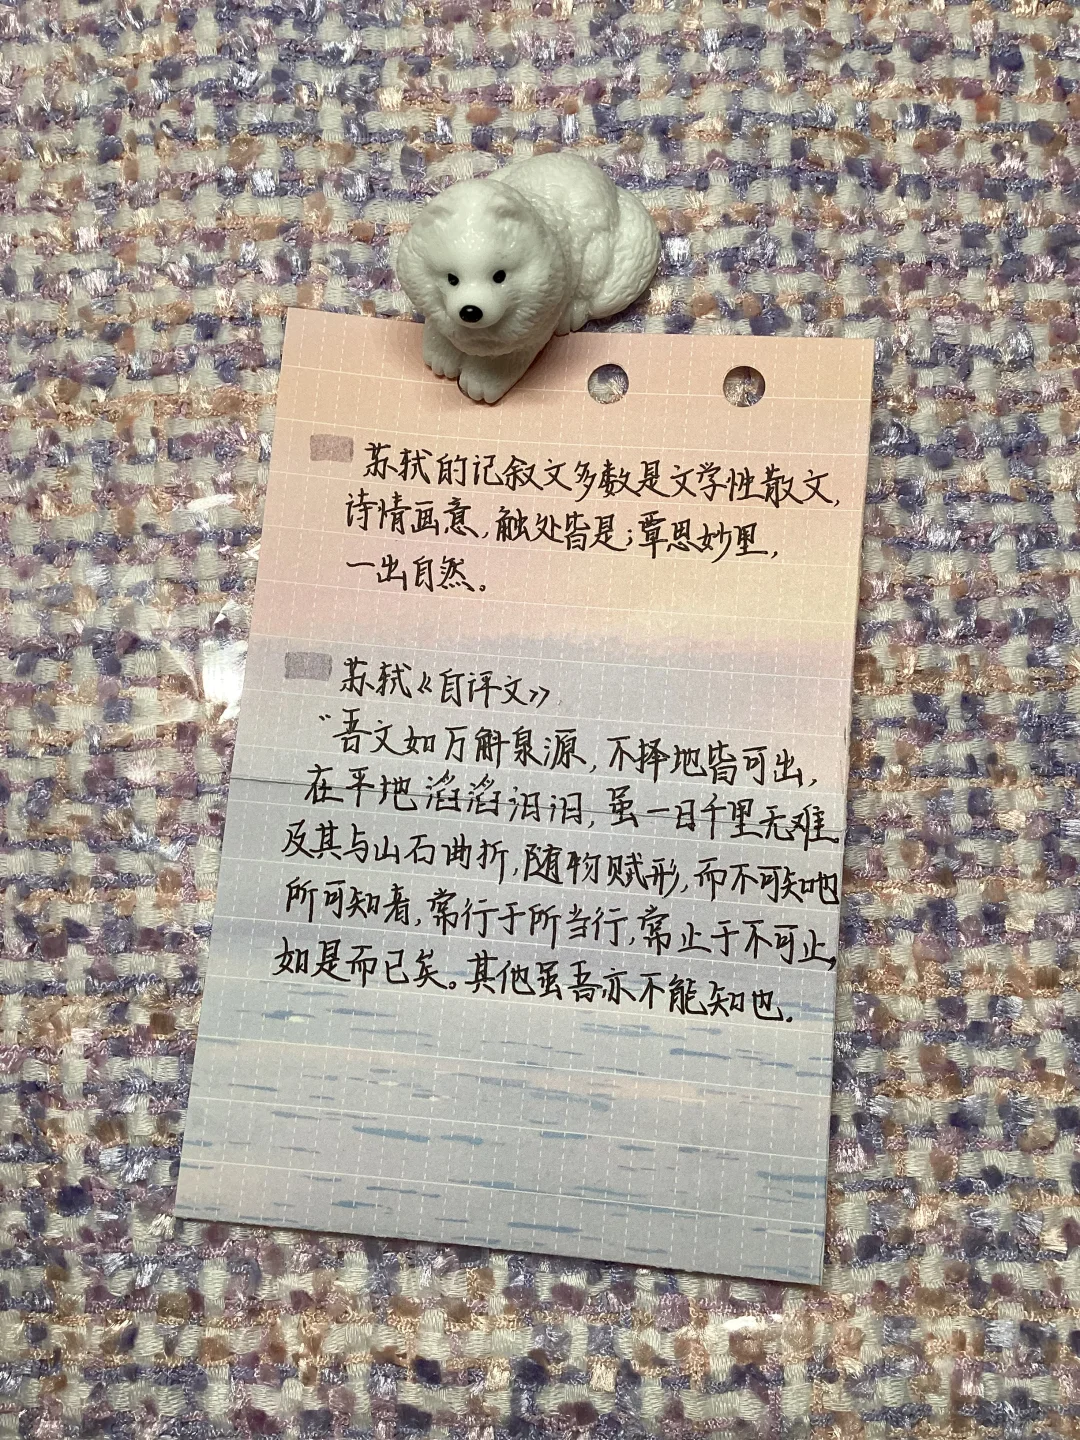 苏轼的记叙文多数是文学性散文,
诗情画意,触处皆是;覃思妙里,
一出自然。
苏轼《自评文》
“吾文如万斛泉源,不择地皆可出,
在平地滔滔汩汩,虽一日千里无难
及其与山石曲折,随物赋形,而不可知也
所可知者,常行于所当行,常止于不可止,
如是而已矣。其他虽吾亦不能知也.